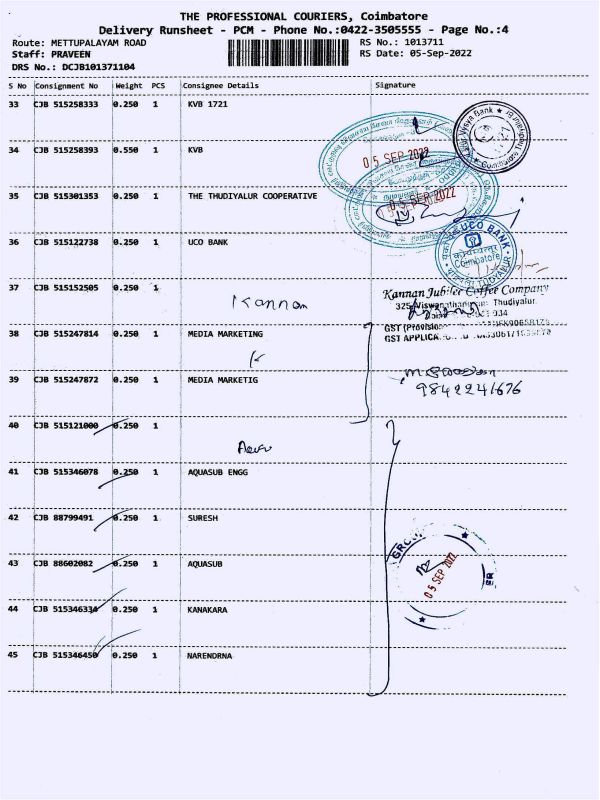 THE PROFESSIONAL COURIERS, Coimbatore
Delivery Runsheet - PCM - Phone No.:0422-3505555 - Page No.:4
Route: METTUPALAYAM ROAD
RS No.: 1013711
Staff: PRAVEEN
RS Date: 05-Sep-2022
DRS No.: DCJB101371104
S No Consignment No Weight PCS Consignee Details Signature
33 CJB 515258333 0.250 1 KVB 1721
Vysya Bank
34 CJB 515258393 0.550 1 KVB
05 SEP 2022
35 CJB 515301353 0.250 1 THE THUDIYALUR COOPERATIVE
05 SEP 2022
36 CJB 515122738 0.250 1 UCO BANK
UCO BANK
Coimbatore
37 CJB 515152505 0.250 1
Kannan
Kannan Jubilee Coffee Company
Thudiyalur
38 CJB 515247814 0.250 1 MEDIA MARKETING
39 CJB 515247872 0.250 1 MEDIA MARKETIG
9842241676
40 CJB 515121000 0.250 1
41 CJB 515346078 0.250 1 AQUASUB ENGG
42 CJB 88799491 0.250 1 SURESH
43 CJB 88602082 0.250 1 AQUASUB
05 SEP 2022
44 CJB 515346334 0.250 1 KANAKARA
45 CJB 515346450 0.250 1 NARENDRNA